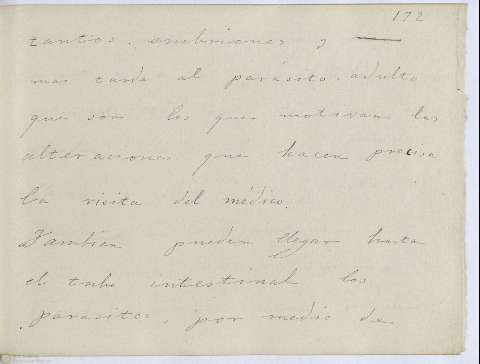 172
tantos. embriones y —
mas tarde al parásito. adulto
que son los que motivan las
alteraciones que hacen precisa
la visita del médico.
Tambien pueden llegar hasta
el tubo intestinal los
parasitos, por medio de